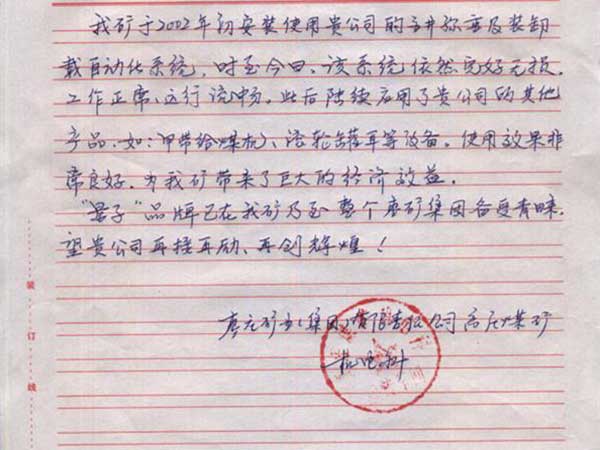 我矿于2002年初安装使用贵公司的主井称重及装卸
载自动化系统，时至今日，该系统依然完好无损，
工作正常、运行流畅。此后陆续启用了贵公司的其他
产品，如：甲带给煤机、滚轮罐耳等设备，使用效果非
常良好，为我矿带来了巨大的经济效益。
“量子”品牌已在我矿乃至整个枣矿集团备受青睐，
望贵公司再接再励、再创辉煌！
枣庄矿业(集团)有限责任公司高庄煤矿
机电科
装
订
线